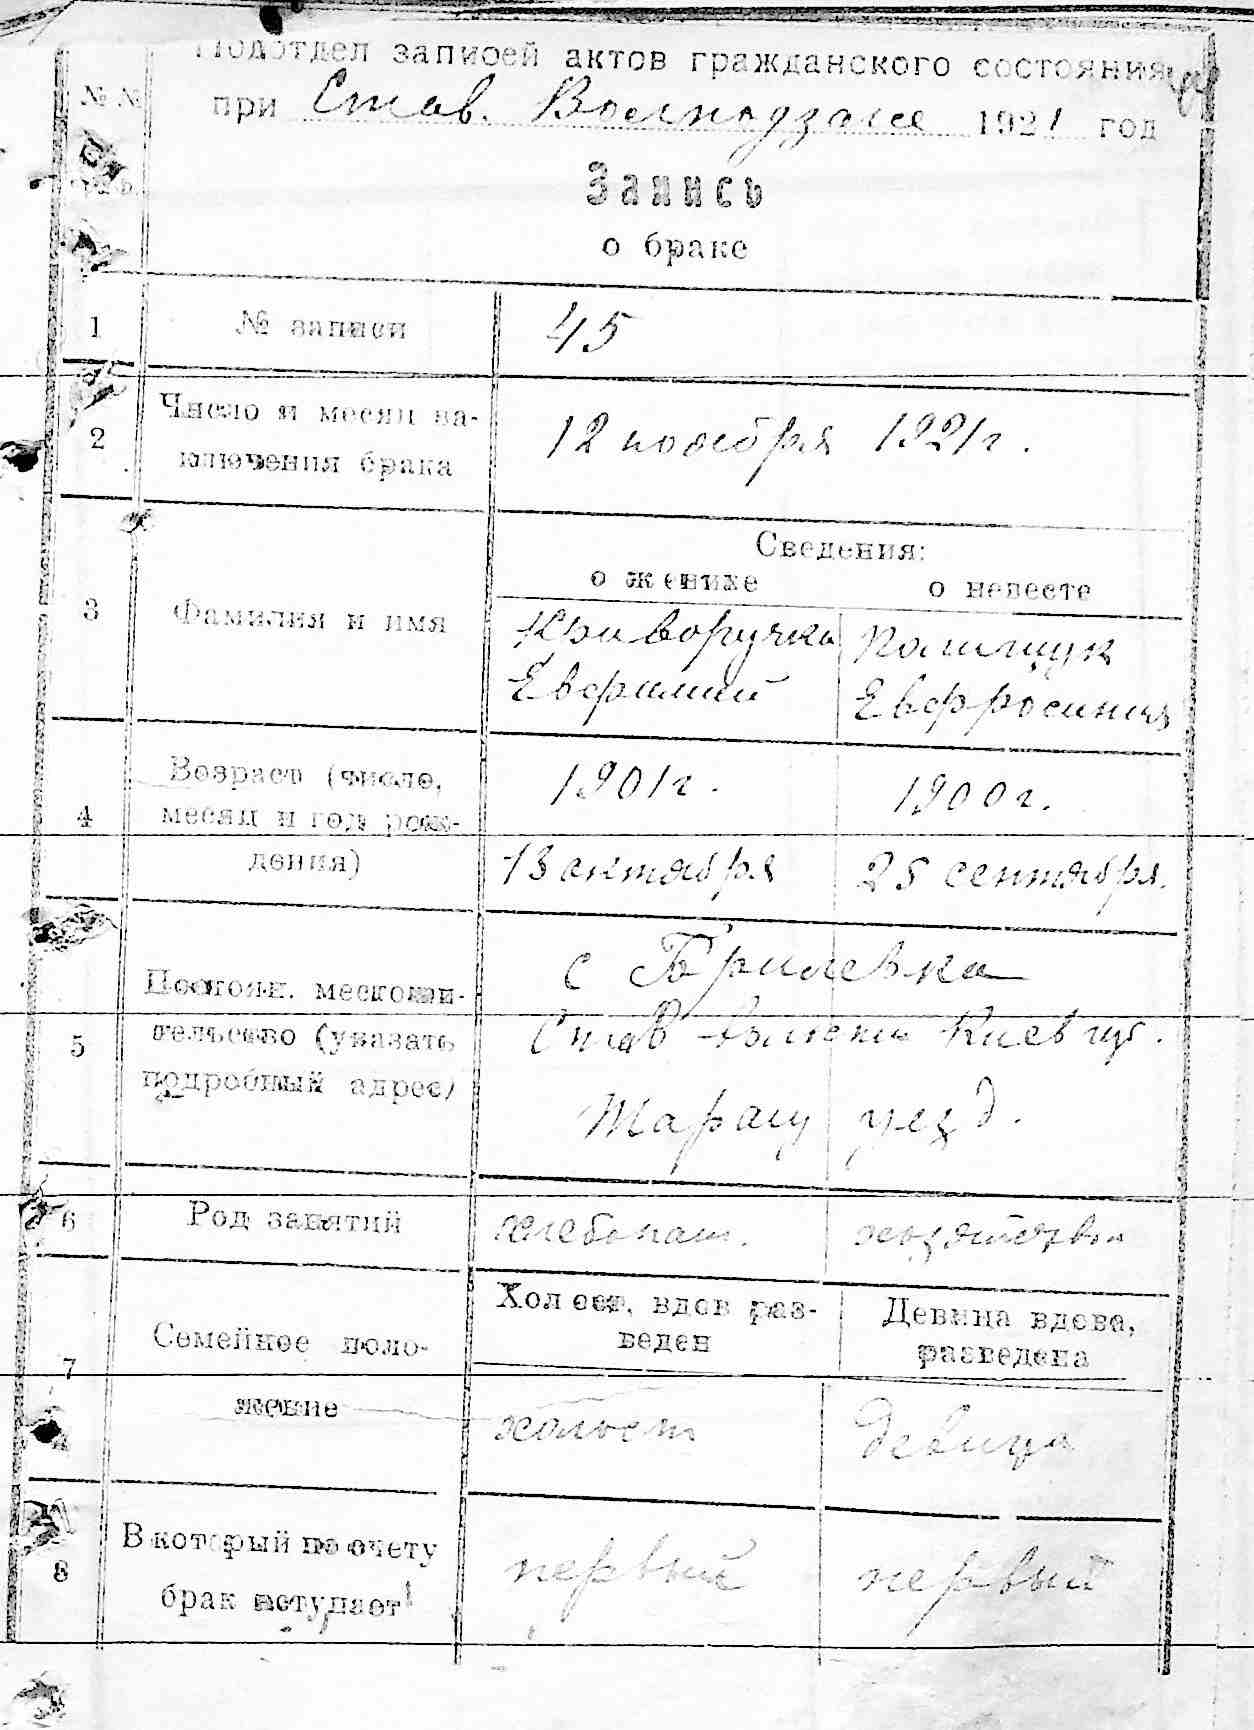 Подотдел записей актов гражданского состояния
№ №
при Став. 1921 год
Запись
о браке
1 № записи 45
2 Число и месяц за-
ключения брака
12 ноября 1921 г.
Сведения:
о женихе о невесте
3 Фамилия и имя
Криворучко Полищук
Евфимий Евфросиния
4 Возраст (число,
месяц и год рож-
дения)
1901 г. 1900 г.
13 октября 25 сентября.
5 Постоян. местожи-
тельство (указать
подробный адрес)
с Брилевка
Став Киев губ.
Таращ уезд.
6 Род занятий хлебопаш.
7 Семейное поло-
жение
Холост, вдов раз-
веден
Девица вдова,
разведена
холост девица
8 В который по счету
брак вступает
первый первый